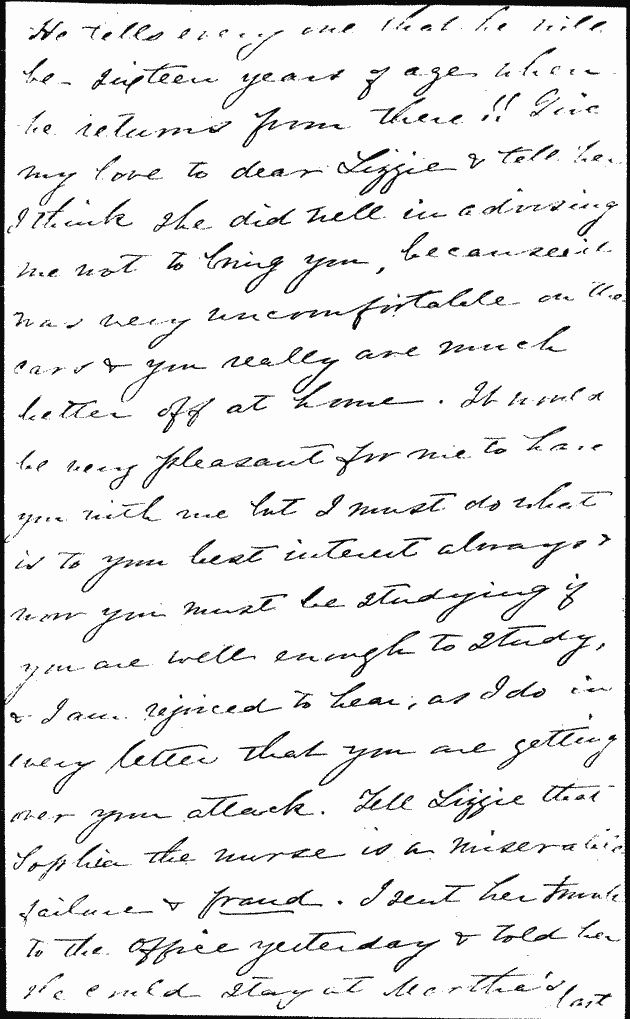 He tells every one that he will
be sixteen years of age when
he returns from there!! Give
my love to dear Lizzie & tell her
I think she did well in advising
me not to bring you, because it
was very uncomfortable on the
cars & you really are much
better off at home. It would
be very pleasant for me to have
you with me but I must do what
is to your best interest always &
now you must be studying if
you are well enough to study,
& I am rejoiced to hear, as I do in
every letter that you are getting
over your attack. Tell Lizzie that
Sophia the nurse is a miserable
failure & fraud. I sent her trunk
to the office yesterday & told her
she could stay at Martha's last